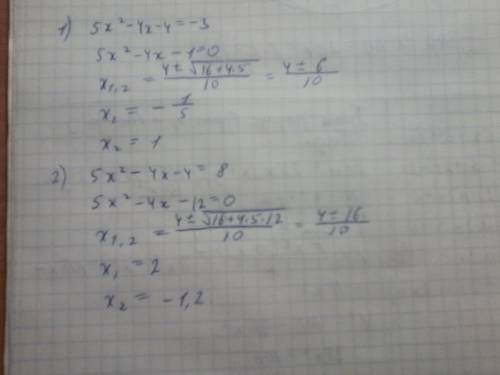 1) 5x² - 4x - 4 = -3
5x² - 4x - 1 = 0
x₁,₂ = (4 ± √(16 + 4·5))/10 = (4 ± 6)/10
x₁ = -1/5
x₂ = 1
2) 5x² - 4x - 4 = 8
5x² - 4x - 12 = 0
x₁,₂ = (4 ± √(16 + 4·5·12))/10 = (4 ± 16)/10
x₁ = 2
x₂ = -1,2